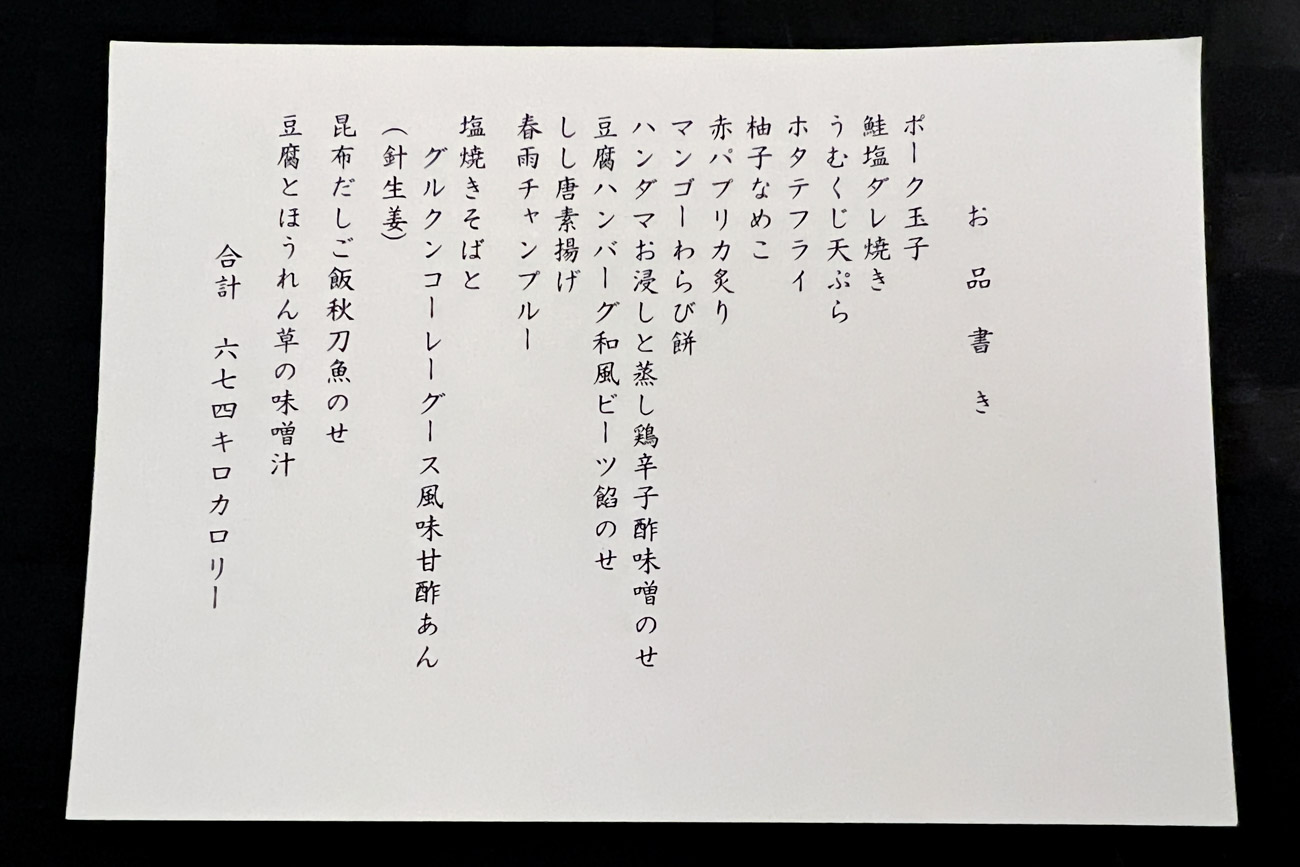 お品書き
ポーク玉子
鮭塩ダレ焼き
うむくじ天ぷら
ホタテフライ
柚子なめこ
赤パプリカ炙り
マンゴーわらび餅
ハンダマお浸しと蒸し鶏辛子酢味噌のせ
豆腐ハンバーグ和風ビーツ餡のせ
しし唐素揚げ
春雨チャンプルー
塩焼きそばと
グルクンコーレーグース風味甘酢あん
(針生姜)
昆布だしご飯秋刀魚のせ
豆腐とほうれん草の味噌汁
合計 六七四キロカロリー